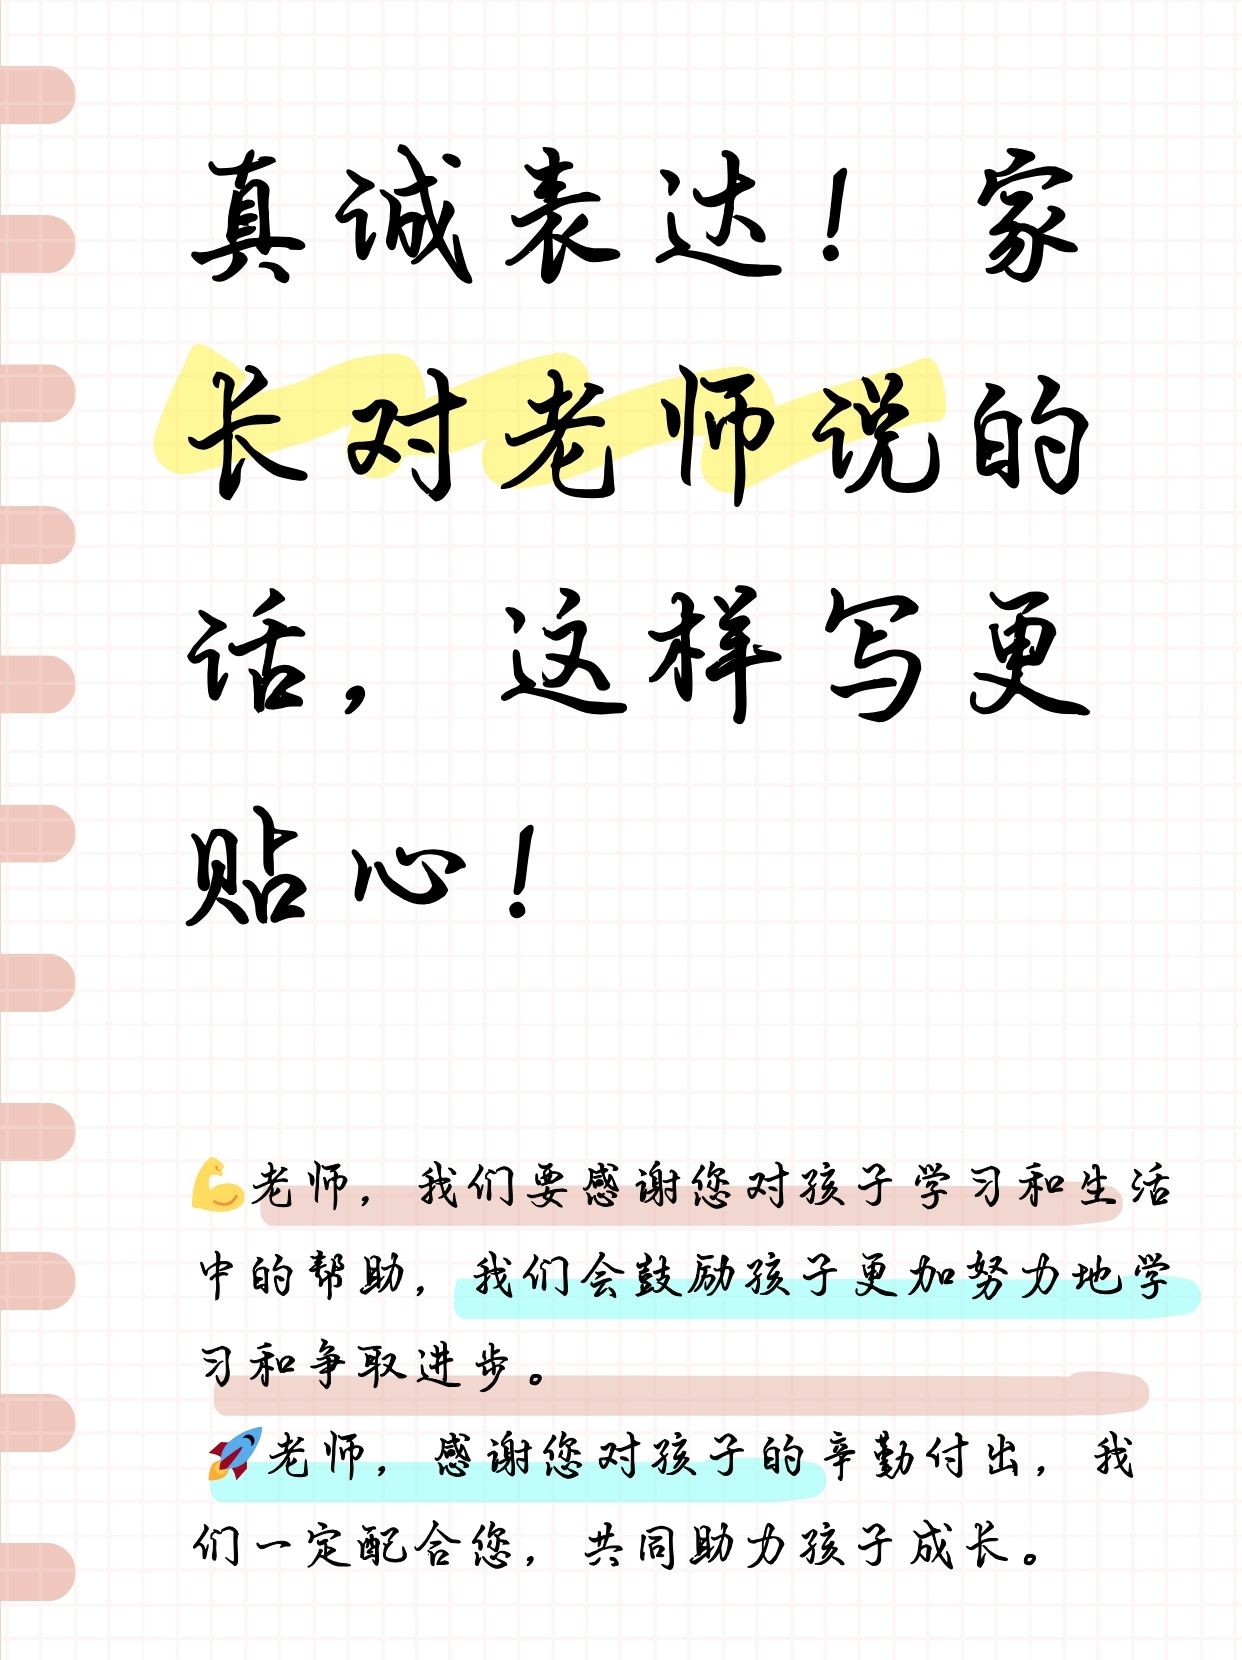 真诚表达！家
长对老师说的
话，这样写更
贴心！
💪老师，我们要感谢您对孩子学习和生活
中的帮助，我们会鼓励孩子更加努力地学
习和争取进步。
🚀老师，感谢您对孩子的辛勤付出，我
们一定配合您，共同助力孩子成长。